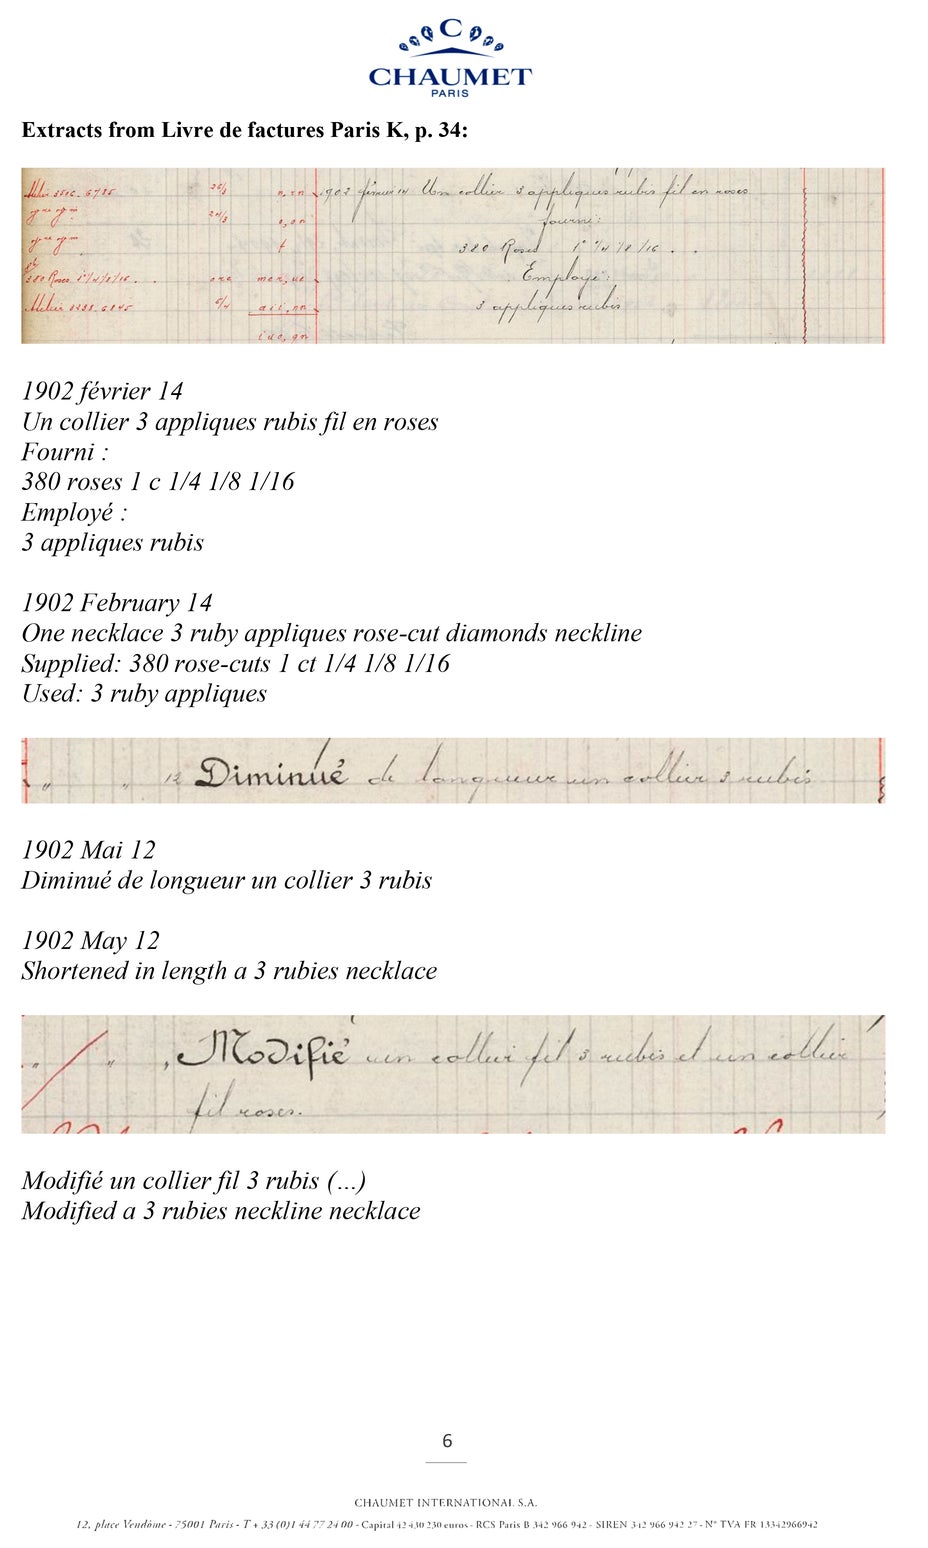 C
CHAUMET
PARIS
Extracts from Livre de factures Paris K, p. 34:
Atelier 6785 26/3 1902 février 14 Un collier 3 appliques rubis fil en roses
24/3 fourni:
380 Roses 1c 1/4 1/8 1/16 . .
380 Roses 1c 1/4 1/8 1/16 . . Employé:
Atelier 3 appliques rubis
1902 février 14
Un collier 3 appliques rubis fil en roses
Fourni :
380 roses 1 c 1/4 1/8 1/16
Employé :
3 appliques rubis
1902 February 14
One necklace 3 ruby appliques rose-cut diamonds neckline
Supplied: 380 rose-cuts 1 ct 1/4 1/8 1/16
Used: 3 ruby appliques
" " 12 Diminué de longueur un collier 3 rubis
1902 Mai 12
Diminué de longueur un collier 3 rubis
1902 May 12
Shortened in length a 3 rubies necklace
" " , Modifié un collier fil 3 rubis et un collier
fil roses.
Modifié un collier fil 3 rubis (…)
Modified a 3 rubies neckline necklace
6
CHAUMET INTERNATIONAL S.A.
12, place Vendôme - 75001 Paris - T + 33 (0)1 44 77 24 00 - Capital 42 430 230 euros - RCS Paris B 342 966 942 - SIREN 342 966 942 27 - N° TVA FR 13342966942